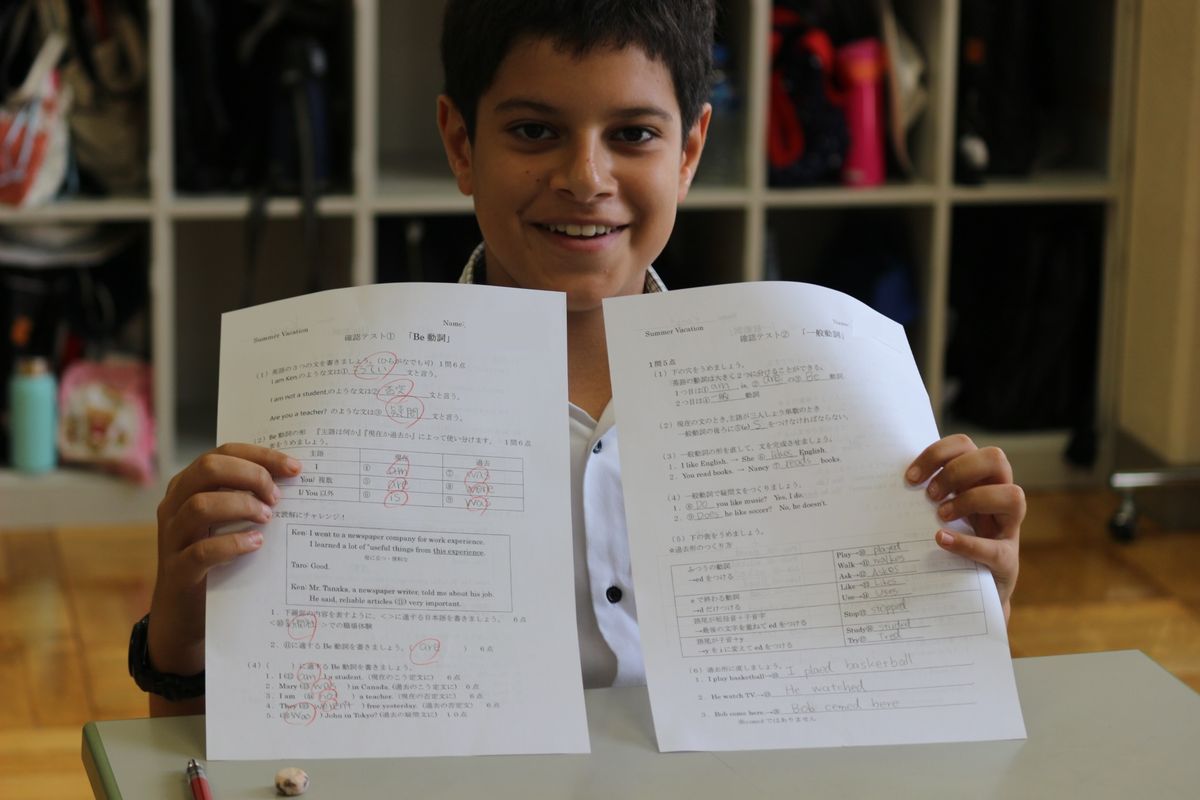 Summer Vacation
Name:
確認テスト① 「Be 動詞」
(1) 英語の3つの文を書きましょう。(ひらがなでも可) 1問6点
I am Ken.のような文は① 文と言う。
I am not a student.のような文は② 否定 文と言う。
Are you a teacher? のような文は③ 疑問 文と言う。
(2) Be 動詞の形 『主語は何か』『現在か過去か』によって使い分けます。 1問6点
をうめましょう。
主語 現在 過去
I ④ am ⑦ was
You/ 複数 ⑤ are ⑧ were
I/ You 以外 ⑥ is ⑨ was
文読解にチャレンジ!
Ken: I went to a newspaper company for work experience.
I learned a lot of *useful things from this experience.
役に立つ・便利な
Taro: Good.
Ken: Mr. Tanaka, a newspaper writer, told me about his job.
He said, reliable articles (⑪) very important.
1. 下線部の内容を表すように、< >に適する日本語を書きましょう。 6点
<⑩ 新聞社 > での職場体験
2. ⑪に適する Be 動詞を書きましょう。( are ) 6点
(4) ( )に適する Be 動詞を書きましょう。
1. I (⑫ am ) a student. (現在のこう定文に) 6点
2. Mary (⑬ was ) in Canada. (過去のこう定文に) 6点
3. I am (⑭ no ) a teacher. (現在の否定文に) 6点
4. They (⑮ weren't ) free yesterday. (過去の否定文) 6点
5. (⑯ Was ) John in Tokyo? (過去の疑問文に) 10点
Summer Vacation
Name:
確認テスト② 「一般動詞」
1問5点
(1) 下の穴をうめましょう。
英語の動詞は大きく2つに分けることができる。
1つ目は① am is ② are の③ be 動詞
2つ目は④ 一般 動詞
(2) 現在の文のとき,主語が三人しょう単数のとき
一般動詞の後ろに⑤ s をつけなければならない。
(3) 一般動詞の形を直して、文を完成させましょう。
1. I like English. → She ⑥ likes English.
2. You read books. → Nancy ⑦ reads books.
(4) 一般動詞で疑問文をつくりましょう。
1. ⑧ Do you like music? Yes, I do.
2. ⑨ Does he like soccer? No, he doesn't.
(5) 下の表をうめましょう。
※過去形のつくり方
ふつうの動詞
→ed をつける
Play→⑩ played
Walk→⑪ walkes
Ask→⑫ Askes
e で終わる動詞
→d だけつける
Like→⑬ Likes
Use→⑭ Uses
語尾が短母音+子音字
→最後の文字を重ねて ed をつける
Stop⑮ stopped
語尾が子音+y
→y を i に変えて ed をつける
Study⑯ studied
Try⑰ Tried
(6) 過去形に直しましょう。
1. I play basketball→⑱ I plaed baskerball
2. He watch TV→⑲ He watched
3. Bob come here.→⑳ Bob comed here
※comed ではありません